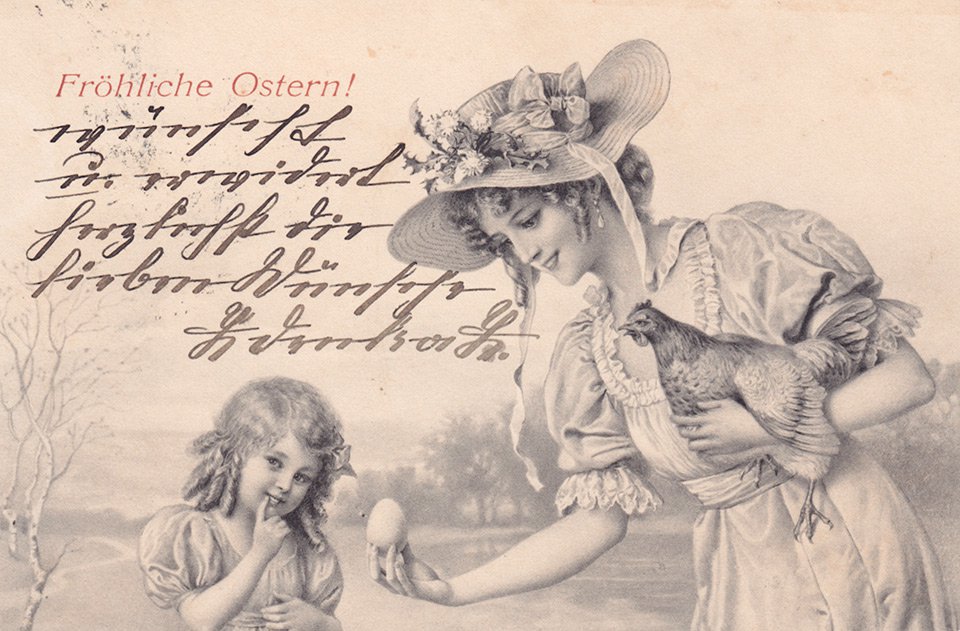 Fröhliche Ostern!
wünscht
u. erwidert
herzlichst die
lieben Wünsche